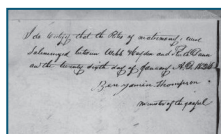 I do certify that the Rites of matrimony were
Solemnized between Webb Hayden and
on the twenty sixth day of January A.D.
Benjamin Thompson
minister of the gospel